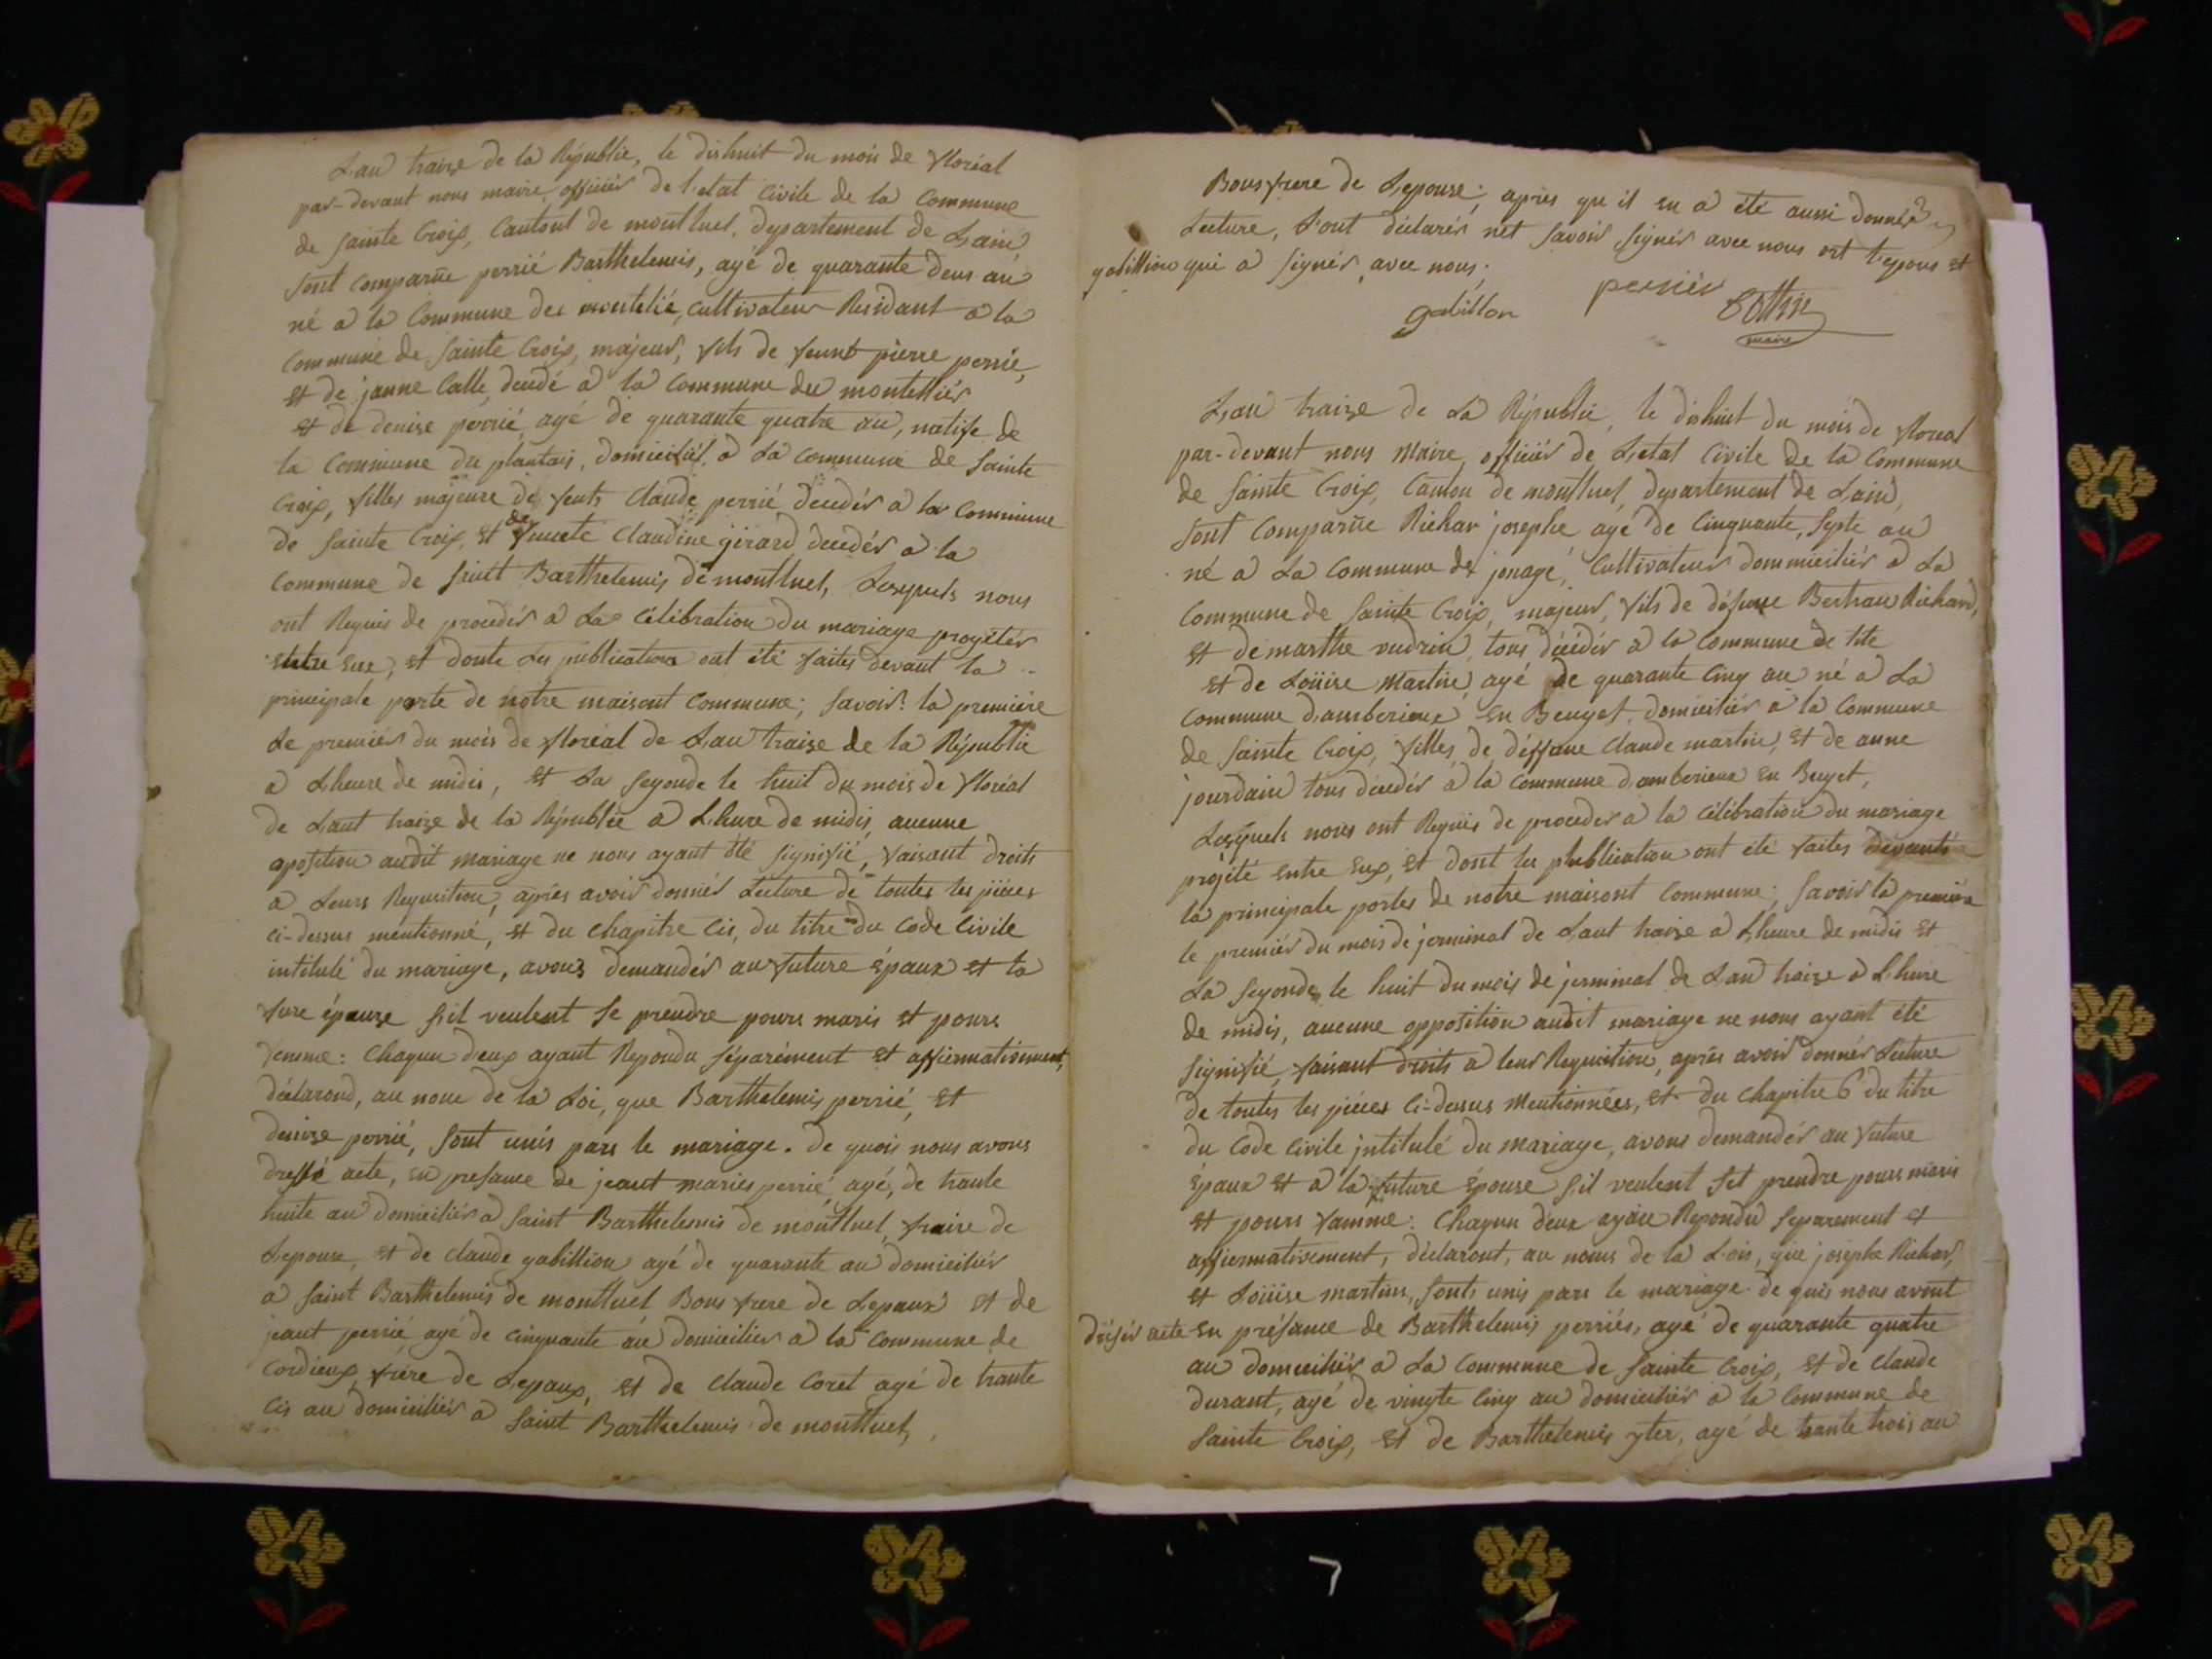 Lan traize de la Républic, le dishuit du mois de floréal
par-devant nous maire officiér de letat Civile de la Commune
de Sainte Croix, Cantont de montluel, dypartement de Lain
Sont Comparue perrié Barthelemis, agé de quarante deus an
né a la Commune des montelié, Cultivateur Residant a la
Commune de Sainte Croix, majeur, fils de feunt pierre perrié,
et de janne Calle, decedé a la Commune des montelliér
et de denise perrié agé de quarante quatre an, natife de
la Commune du plantais, domiciliéé a La Commune de Sainte
Croix, filles majeure de feuts Claude perrié decedér a la Commune
de Sainte Croix, et de feuete Claudine girard decedér a la
Commune de sainct Barthelemis de montluel, Lesquels nous
ont Requis de procedér a La Célébration du mariage progétér
entre eux, et donte Les publication ont été faites devant la
principale porte de notre maisont Commune; Savoir: la premiére
Le premiér du mois de floréal de Lan traize de la Républic
a Lheure de midis, et La segonde le huit du mois de floréal
de Lant traize de la Républic a Lheure de midis, aucunne
oposition audit mariage ne nous ayant été signifié, faisant droits
a Leurs Requisition, aprés avoir donnér Lecture de toutes les piéces
ci-dessus mentionné, et du Chapitre Cis, du titre du Code Civile
intitulé du mariage, avons demandér au future épaux et la
fure épeuze sil veulent se prendre pours maris et pours
femme: Chaqun deux ayant Repondu séparément et affirmativement,
déclarond, au nom de la Loi, que Barthelemis perrié, et
denize perrié, sont unis pars le mariage. de quois nous avons
dressé acte, en presance de jeant maries perrié, agé, de trante
huite an domiciliér a Saint Barthelemis de montluel, fraire de
Lepouse, et de Claude gabillion agé de quarante an domiciliér
a Saint Barthelemis de montluel Bous frere de Lepaux et de
jeant perrié agé de Cinquante an domiciliér a la Commune de
Cordieux frére de Lepaux, et de Claude Coret agé de trante
Cis an domiciliér a Saint Barthelemis de montluel,
Bous frere de Lepouse; aprés que il en a été aussi donnér
Lecture, Sont déclarér net savoir signér avec nous ort Lepous et
gabillion qui a signér avec nous.
gabillon perrier Cottin
maire
Lan traize de La Républic, le dishuit du mois de floreal
par-devant nous Maire officiér de Letat Civile de la Commune
de Sainte Croix, Canton de montluel, departement de Lain,
Sont Comparue Richar josephe agé de Cinquante, septe an
né a La Commune de jonage, Cultivateur dommiciliér a La
Commune de Sainte Croix, majeur, fils de défune Bertran Richard,
et de marthe vudrin, tous décédér a la Commune de tite
et de Loüise Martin, agé de quarante Cinq an né a La
Commune damberieux en Beuget, domiciliér a la Commune
de Sainte Croix, filles, de déffune Claude martin, et de anne
jourdain tous decedér a la Commune damberieux en Buget,
Lesquels nous ont Requis de proceder a la Célébration du mariage
projété entre eux, et dont les plublication ont été faites devants
la principale portes de notre maisont Commune; Savoir la premiére
le premiér du mois de jerminal de Lant traize a Lheure de midis et
La segonde le huit du mois de jerminal de Lan traize a Lhure
de midis, aucune opposition audit mariage ne nous ayant été
signifié, faisant droits a leur Requisition, aprés avoir donnér Lecture
de toutes les piéces Ci-dessus Mentionnées, et du Chapitre 6 du titre
du Code Civile jntitulé du mariage, avons demandér au future
épaux et a la future épouse sil veulent set prendre pours maris
et pours famme: Chaqun deux ayan Repondu separement et
affirmativement, déclaront, au noms de la Lois, que josephe Richar,
et Loüise martins, sonts unis pars le mariage de quis nous avont
drésér acte en présance de Barthelemis perriés, agé de quarante quatre
an domiciliér a La Commune de Sainte Croix, et de Claude
durant, agé de vingte Cinq an domiciliér a la Commune de
Sainte Croix, et de Barthelemis yter, agé de trante trois an